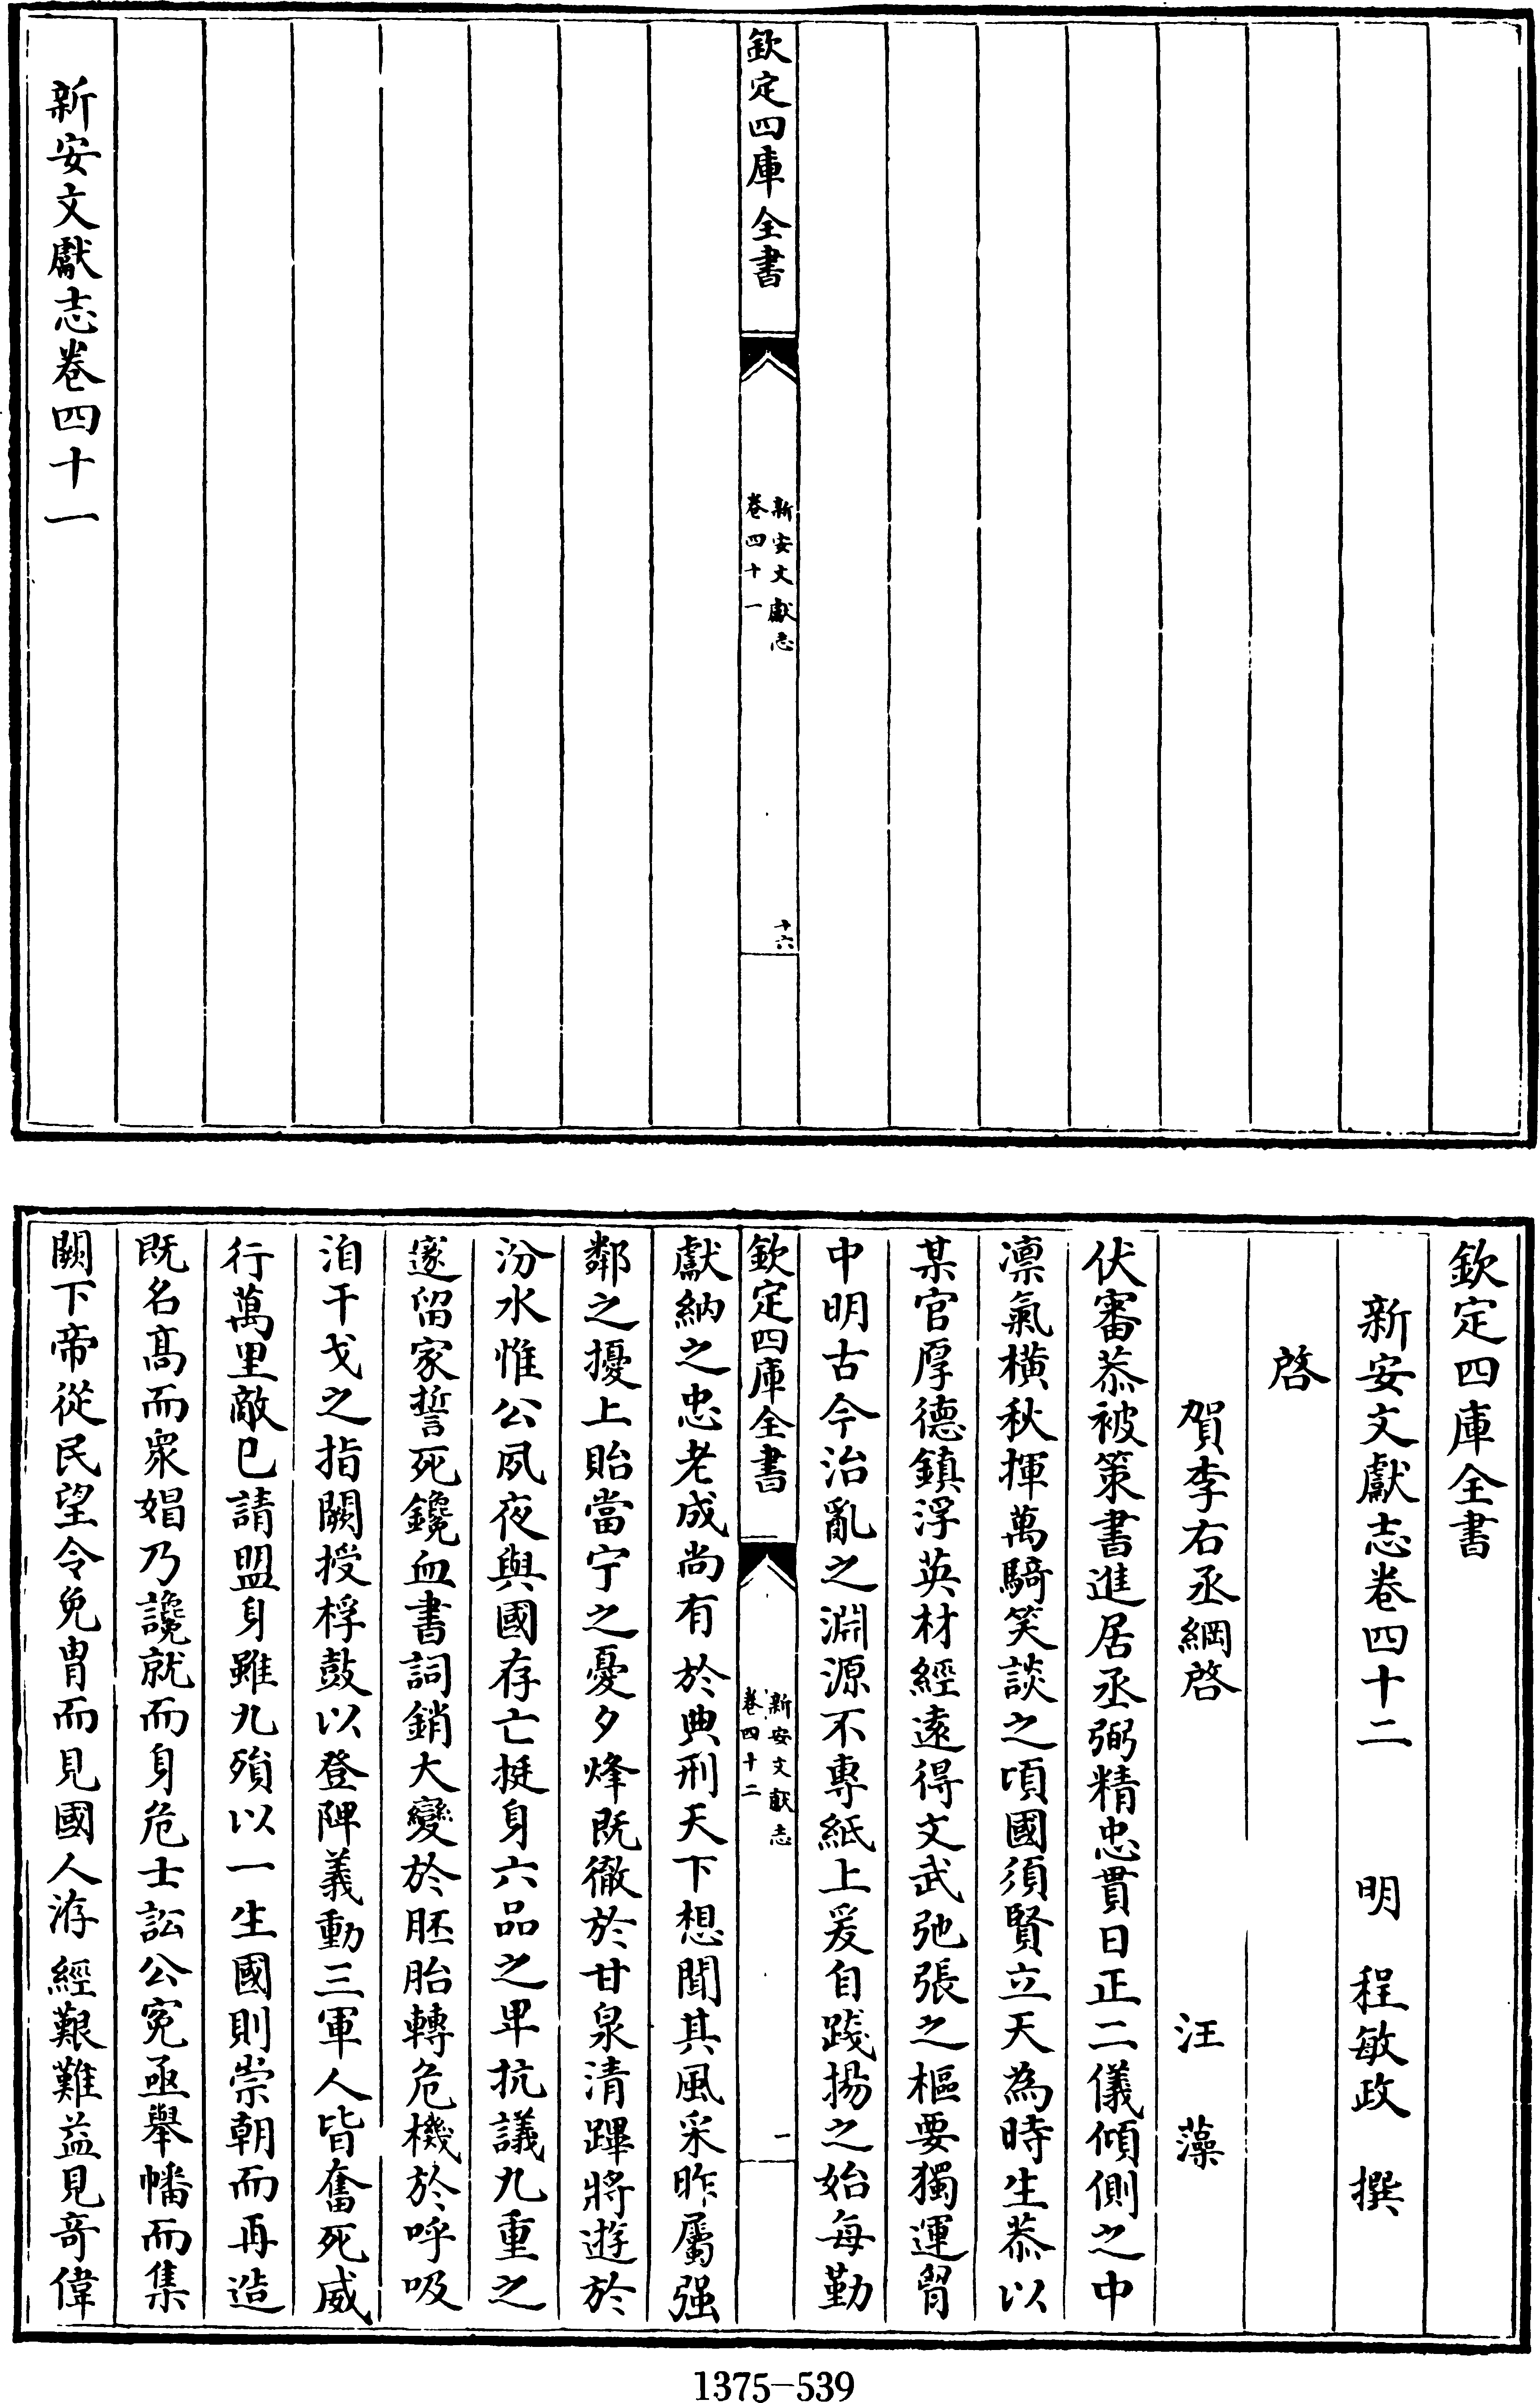 欽定四庫全書
新安文獻志
卷四十一
十六
新安文獻志卷四十一
欽定四庫全書
新安文獻志卷四十二　明　程敏政　撰
啓
賀李右丞綱啓　汪　藻
伏審恭被策書進居丞弼精忠貫日正二儀傾側之中
凛氣橫秋揮萬騎笑談之頃國須賢立天為時生恭以
某官厚德鎮浮英材經逺得文武弛張之樞要獨運胷
中明古今治亂之淵源不專紙上爰自踐揚之始每勤
欽定四庫全書
新安文獻志
卷四十二
一
獻納之忠老成尚有於典刑天下想聞其風采昨屬强
鄰之擾上貽當宁之憂夕烽既徹於甘泉清蹕將遊於
汾水惟公夙夜與國存亡挺身六品之卑抗議九重之
邃留家誓死鑱血書詞銷大變於胚胎轉危機於呼吸
洎干戈之指闕授桴鼓以登陴義動三軍人皆奮死威
行萬里敵已請盟身雖九殞以一生國則崇朝而再造
既名髙而衆娼乃讒就而身危士訟公寃亟舉幡而集
闕下帝從民望令免胄而見國人洊經艱難益見竒偉
1375-539